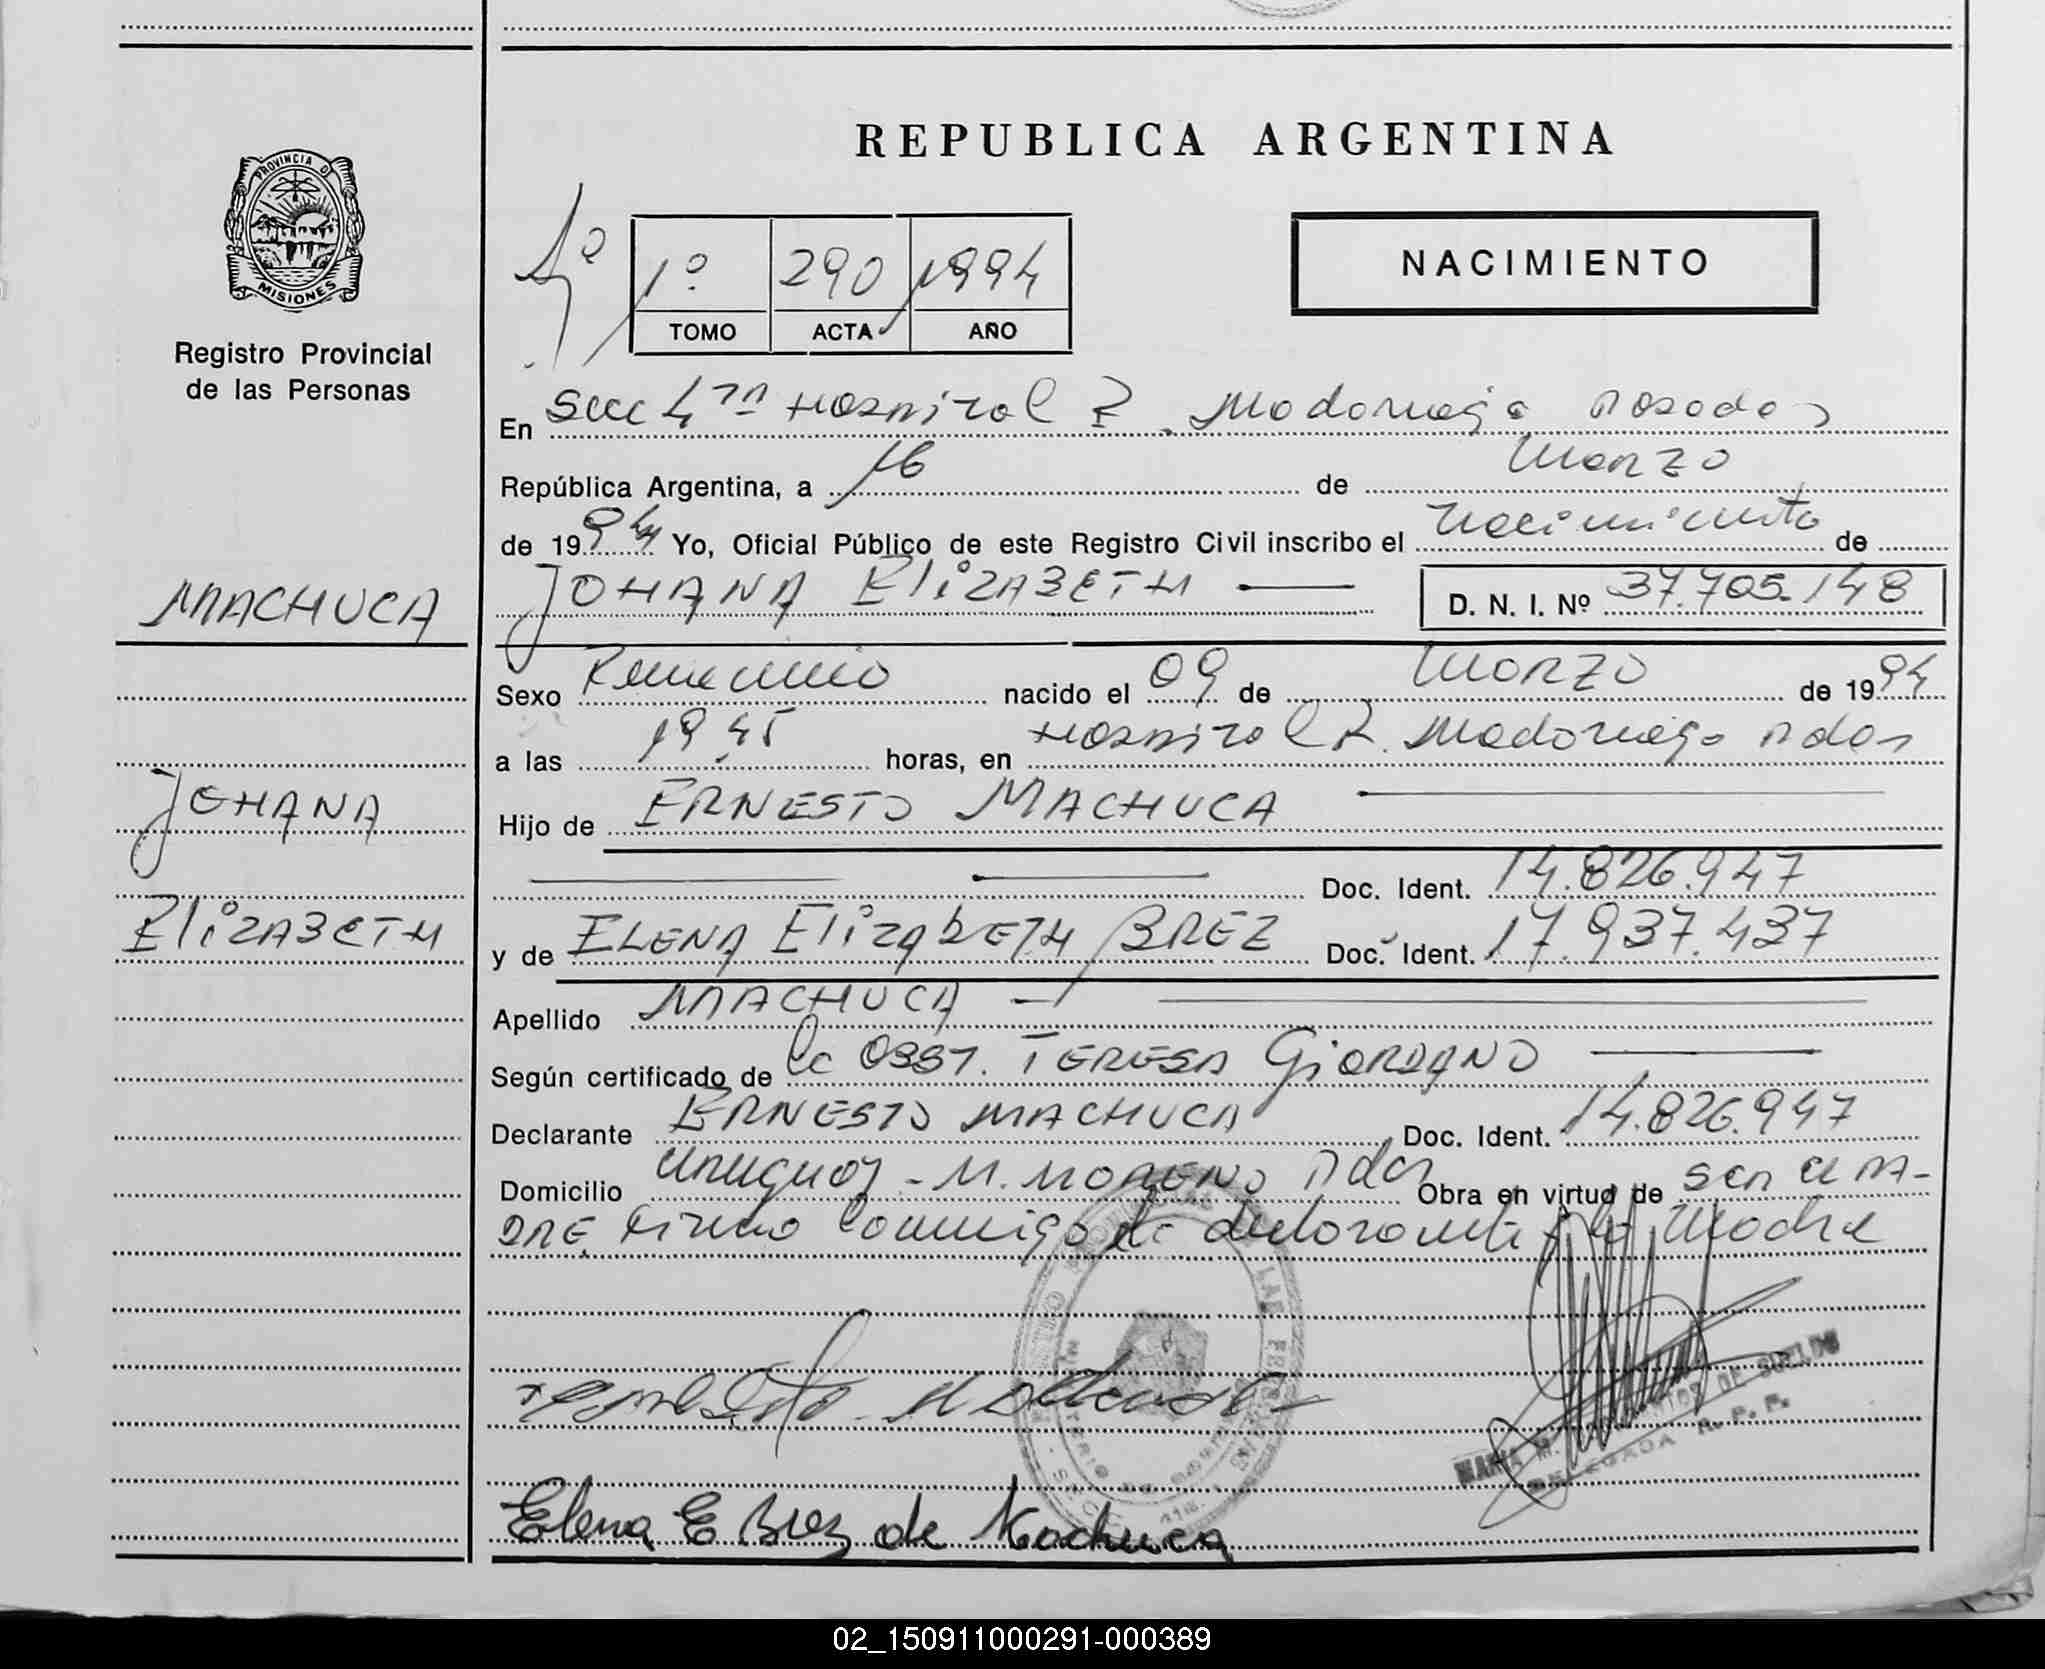 REPUBLICA ARGENTINA
PROVINCIA DE
MISIONES
Registro Provincial
de las Personas
1º 290 1994
TOMO ACTA AÑO
NACIMIENTO
En Secc 4ta Hospital R. Madariaga Posadas
República Argentina, a 16 de Marzo
de 1994 Yo, Oficial Público de este Registro Civil inscribo el nacimiento de
MACHUCA
JOHANA ElizABETH D. N. I. Nº 37.705.148
Sexo Femenino nacido el 09 de Marzo de 1994
a las 19 45 horas, en Hospital R. Madariaga Pdas
JOHANA
Hijo de ERNESTO MACHUCA
Doc. Ident. 14.826.947
ElizABETH
y de ELENA ElizAbETH BREZ Doc. Ident. 17.937.437
Apellido MACHUCA
Según certificado de la OBST. TERESA GiORDANO
Declarante ERNESTO MACHUCA Doc. Ident. 14.826.947
Domicilio Uruguay - M. MORENO Pdas Obra en virtud de ser el PA-
DRE Firma conmigo el declarante y la Madre
DELEGADA R. P. P.
Elena E Brez de Machuca
02_150911000291-000389